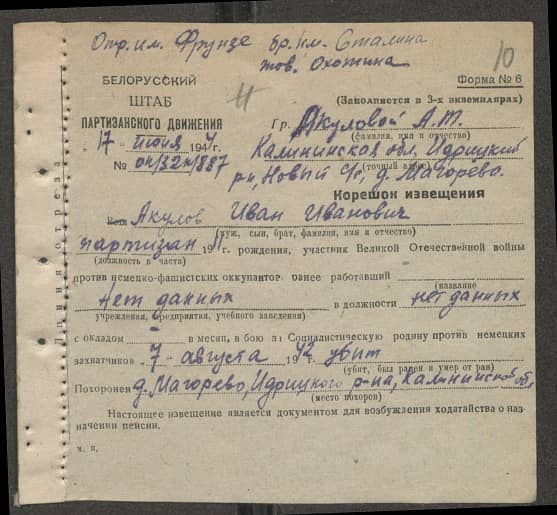 Отр. им. Фрунзе бр. им. Сталина
тов. Охотина
10
БЕЛОРУССКИЙ
Форма № 6
ШТАБ
(Заполняется в 3-х экземплярах)
ПАРТИЗАНСКОГО ДВИЖЕНИЯ
Гр. Акуловой А.Т.
(фамилия, имя и отчество)
"17" июня 1944
Калининская обл. Идрицкий
№ 04/32н/887
(точный адрес)
р-н, Новый с/с, д. Магорево.
Корешок извещения
Акулов Иван Иванович
(муж, сын, брат, фамилия, имя и отчество)
партизан 19 г. рождения, участник Великой Отечественной войны
(должность и часть)
против немецко-фашистских оккупантов ранее работавший
(название
Нет данных в должности нет данных
учреждения, предприятия, учебного заведения)
с окладом - в месяц, в бою за Социалистическую родину против немецких
захватчиков "7" августа 1942 убит
(убит, был ранен и умер от ран)
Похоронен д. Магорево, Идрицкого р-на, Калининской обл.
(место похорон)
Настоящее извещение является документом для возбуждения ходатайства о наз-
начении пенсии.
м. п.
Линия отреза